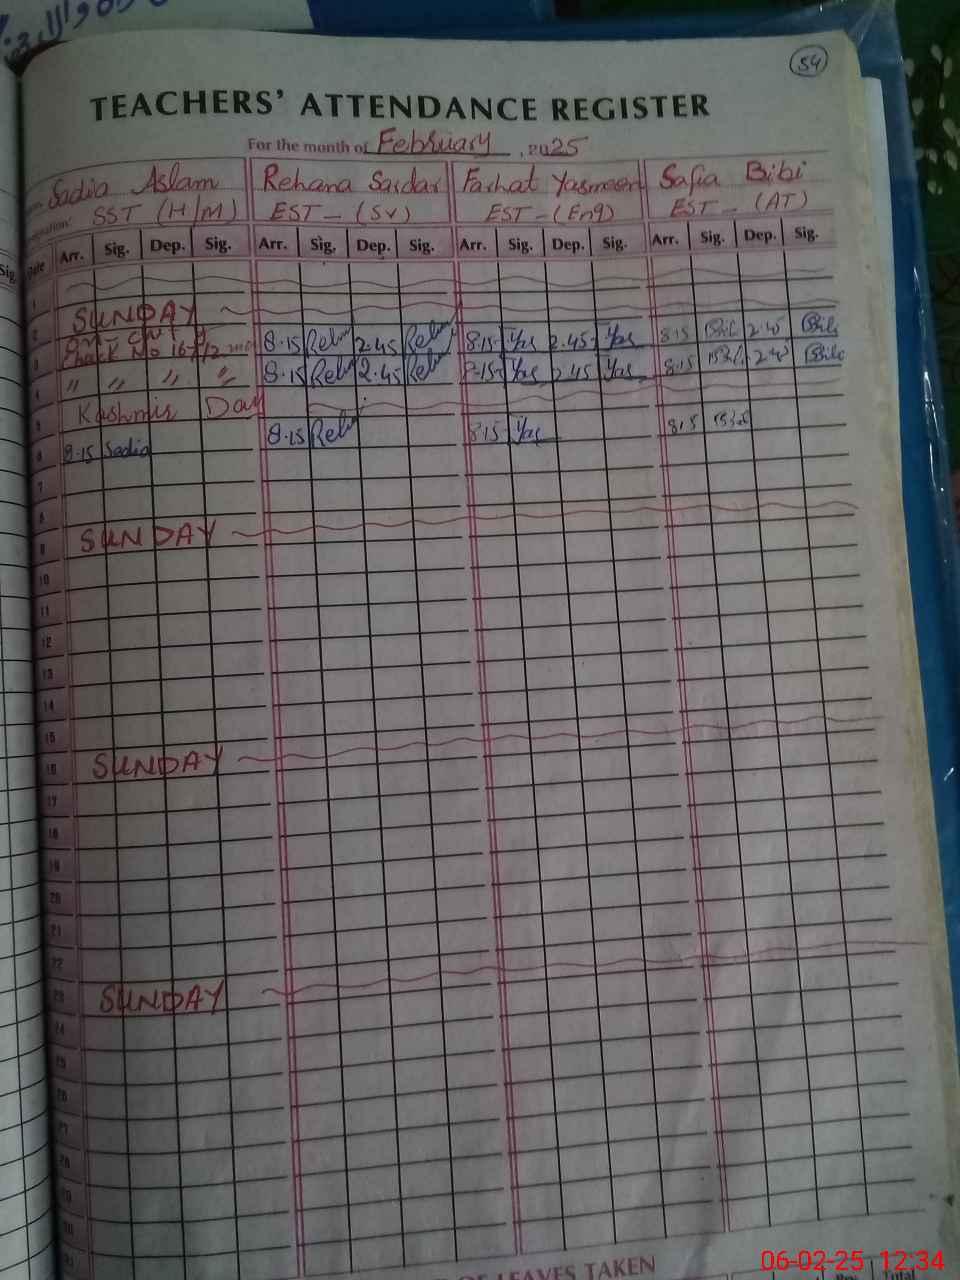 54
TEACHERS' ATTENDANCE REGISTER
For the month of February, 2025
Sadia Aslam Rehana Sardar Farhat Yasmeen Safia Bibi
SST (H/M) EST - (SV) EST - (Eng) EST - (AT)
Date Arr. Sig. Dep. Sig. Arr. Sig. Dep. Sig. Arr. Sig. Dep. Sig. Arr. Sig. Dep. Sig.
1
2 SUNDAY
3 8.15 2.45 8.15 Yas 2.45 Yas 8.15 Bib 2.45 Bib
4 " " " " 8.15 2.45 8.15 Yas 2.45 Yas 8.15 Bib 2.45 Bib
5 Kashmir Day
6 8.15 Sadia 8.15 8.15 Yas 8.15 Bib
7
8
9 SUNDAY
10
11
12
13
14
15
16 SUNDAY
17
18
19
20
21
22
23 SUNDAY
24
25
26
27
28
29
30
31
OF LEAVES TAKEN
06-02-25 12:34